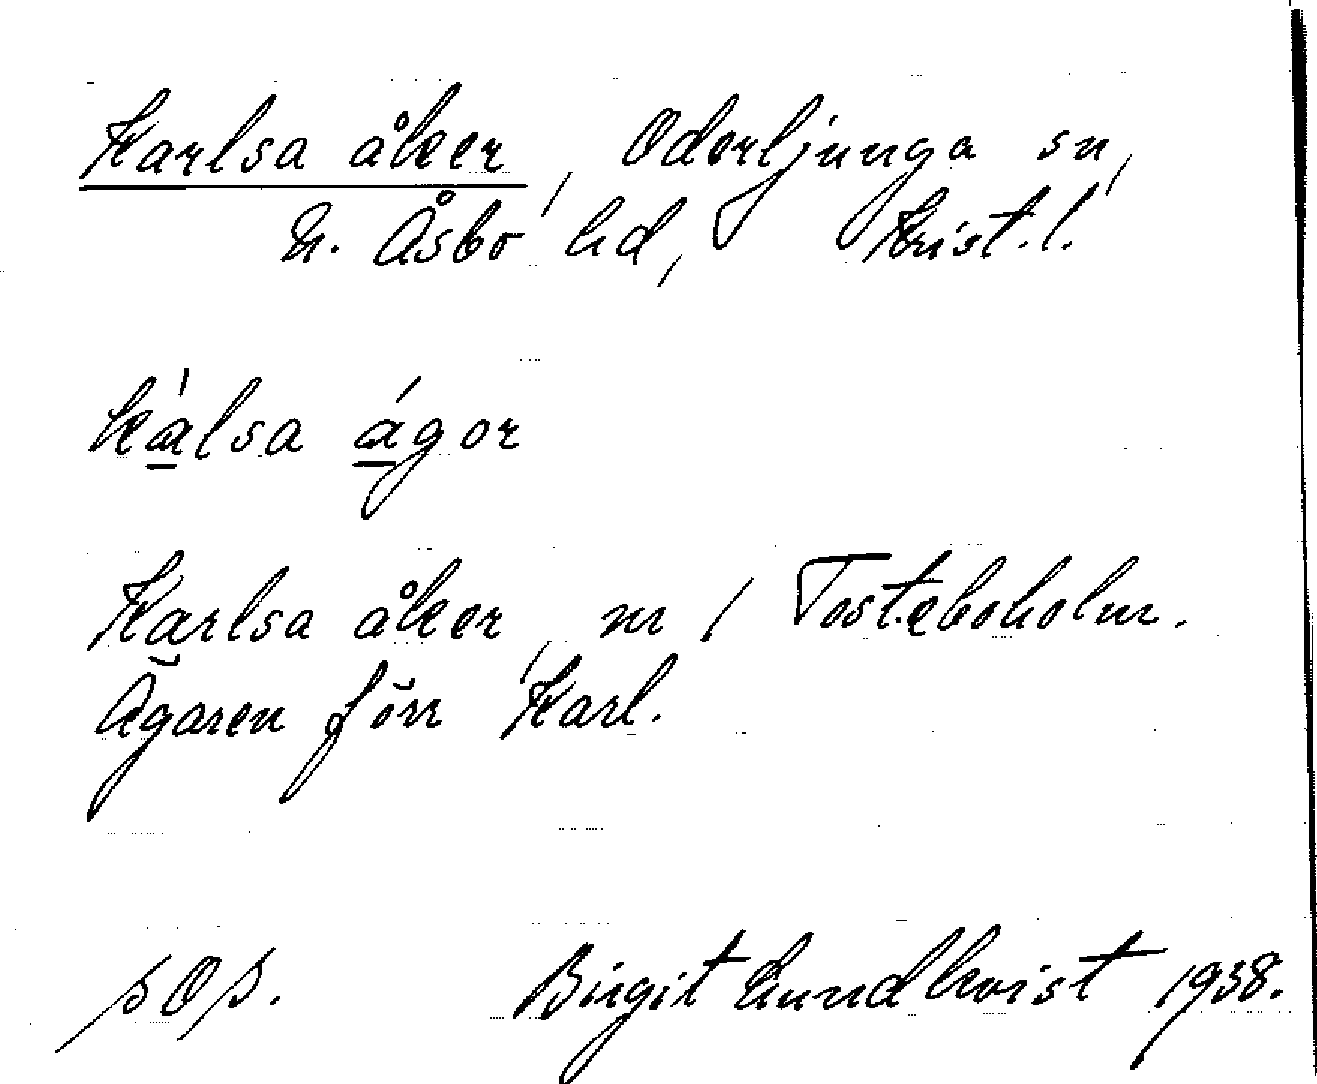 Karlsa åker, Oderljunga sn,
N. Åsbo hd, Krist. l.
ká̱lsa á̱gor
Karlsa åker, nr 1 Tosteboholm.
Ägaren förr Karl.
sOs.
Birgit Lundkvist 1938.